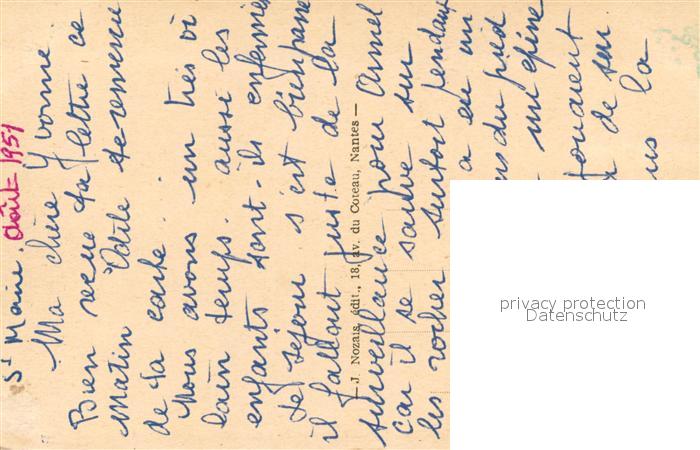 St Marine. Août 1951
Ma chère Yvonne
Bien reçue ta lettre ce
matin Odile te remercie
de ta carte.
Nous avons un très vi
lain temps. aussi les
enfants sont-ils enfermés
le séjour s'est bien passé
il fallait juste de la
surveillance pour Armel
car il se sauve sur
les rocher surtout pendant
a eu un
du pied
un épine
jouaient
de sur
la
— J. Nozais, édit., 18, av. du Coteau, Nantes —
privacy protection
Datenschutz